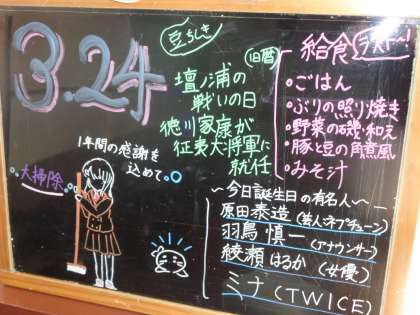 3.24
豆ちしき
旧暦
壇ノ浦の
戦いの日
徳川家康が
征夷大将軍に
就任
給食
ラスト〜!
・ごはん
・ぶりの照り焼き
・野菜の磯和え
・豚と豆の角煮風
・みそ汁
1年間の感謝を
込めて。
大掃除
〜今日誕生日の有名人〜
原田泰造(芸人ネプチューン)
羽鳥慎一(アナウンサー)
綾瀬はるか(女優)
ミナ(TWICE)